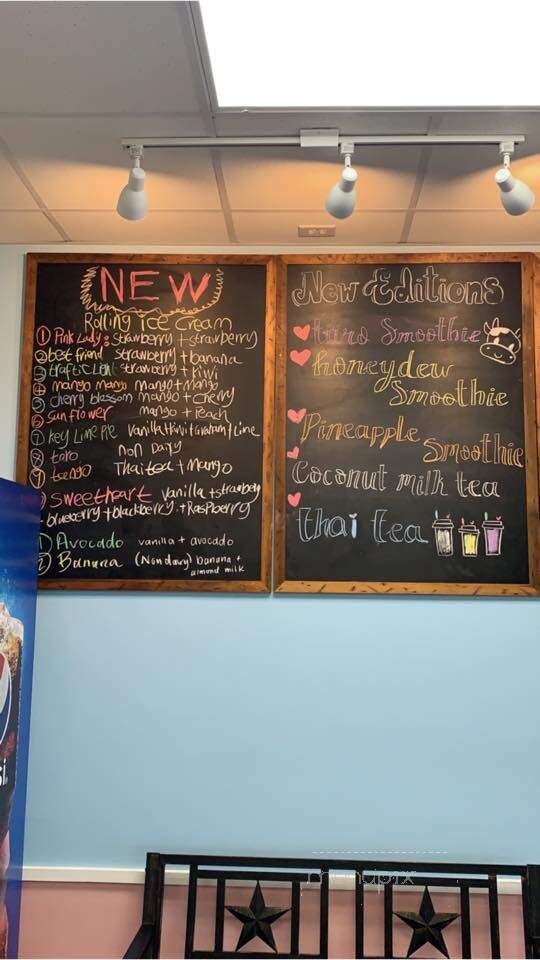 NEW
Rolling ice Cream
1 Pink Lady: strawberry + strawberry
2 best friend strawberry + banana
3 traffic Light strawberry + Kiwi
4 mango mango mango + mango
5 cherry blossom mango + cherry
6 sunflower mango + peach
7 Key Lime Pie vanilla + Kiwi + Graham + Lime
8 taro non Dairy
9 tango Thai tea + Mango
Sweetheart vanilla + strawberry
+ blueberry + blackberry + Raspberry
1 Avocado vanilla + avocado
2 Banana (Non dairy) banana +
almond milk
New Editions
taro Smoothie
honeydew
Smoothie
Pineapple
Smoothie
Coconut milk tea
thai tea